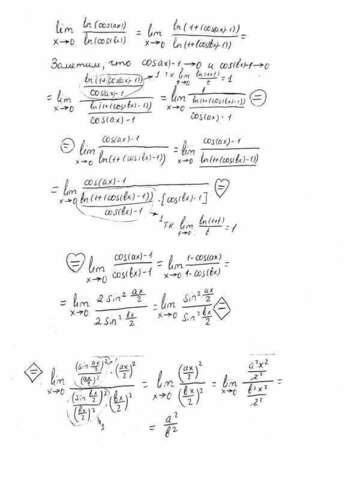 lim x→0 ln(cos(ax)) / ln(cos(bx)) = lim x→0 ln(1+(cos(ax)-1)) / ln(1+(cos(bx)-1)) =
Заметим, что cos(ax)-1→0 и cos(bx)-1→0
= lim x→0 (ln(1+(cos(ax)-1)) / (cos(ax)-1)) / (ln(1+(cos(bx)-1)) / (cos(ax)-1)) →1 т.к. lim t→0 ln(1+t)/t = 1 = lim x→0 1 / (ln(1+(cos(bx)-1)) / (cos(ax)-1)) =
= lim x→0 (cos(ax)-1) / ln(1+(cos(bx)-1)) = lim x→0 (cos(ax)-1) / ln(1+(cos(bx)-1)) =
= lim x→0 (cos(ax)-1) / (ln(1+(cos(bx)-1)) / (cos(bx)-1) · [cos(bx)-1]) =
→1 т.к. lim t→0 ln(1+t)/t = 1
= lim x→0 (cos(ax)-1) / (cos(bx)-1) = lim x→0 (1-cos(ax)) / (1-cos(bx)) =
= lim x→0 (2 sin² ax/2) / (2 sin² bx/2) = lim x→0 (sin² ax/2) / (sin² bx/2) =
= lim x→0 ((sin ax/2)² / (ax/2)² · (ax/2)²) / ((sin bx/2)² / (bx/2)² · (bx/2)²) = lim x→0 (ax/2)² / (bx/2)² = lim x→0 (a²x²/2²) / (b²x²/2²) =
→1
= a²/b²